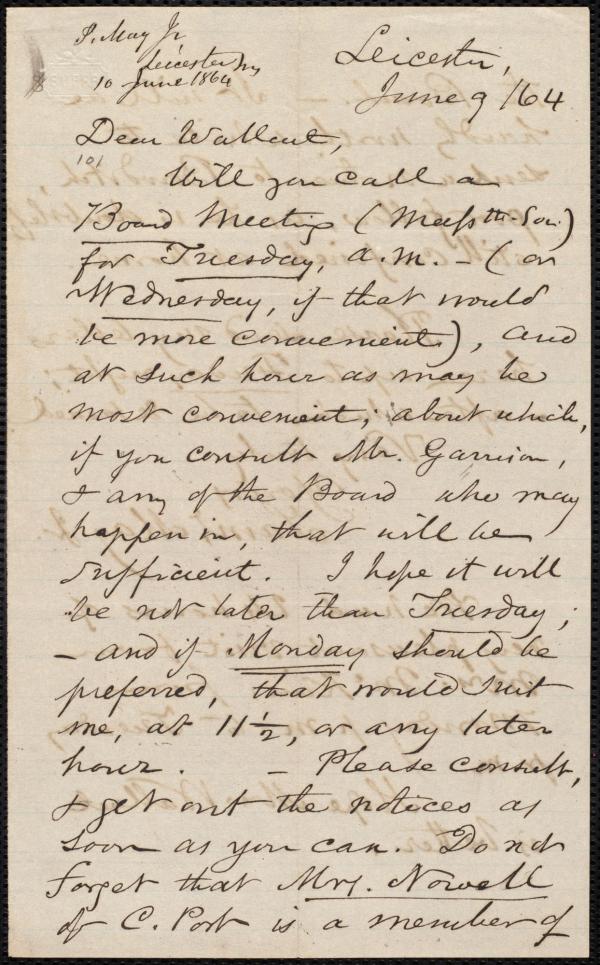 S. May Jr
Leicester
10 June 1864
Leicester,
June 9 /64
Dear Wallcut,
101
Will you call a
Board Meeting (Mass
for Tuesday, a.m. – (or
Wednesday, if that would
be more convenient), and
at such hour as may be
most convenient; about which,
if you consult Mr. Garrison,
& any of the Board who may
happen in, that will be
sufficient. I hope it will
be not later than Tuesday;
– and if Monday should be
preferred, that would suit
me, at 11½, or any later
hour. – Please consult,
& get out the notices as
soon as you can. Do not
forget that Mrs. Nowell
of C. Port is a member of